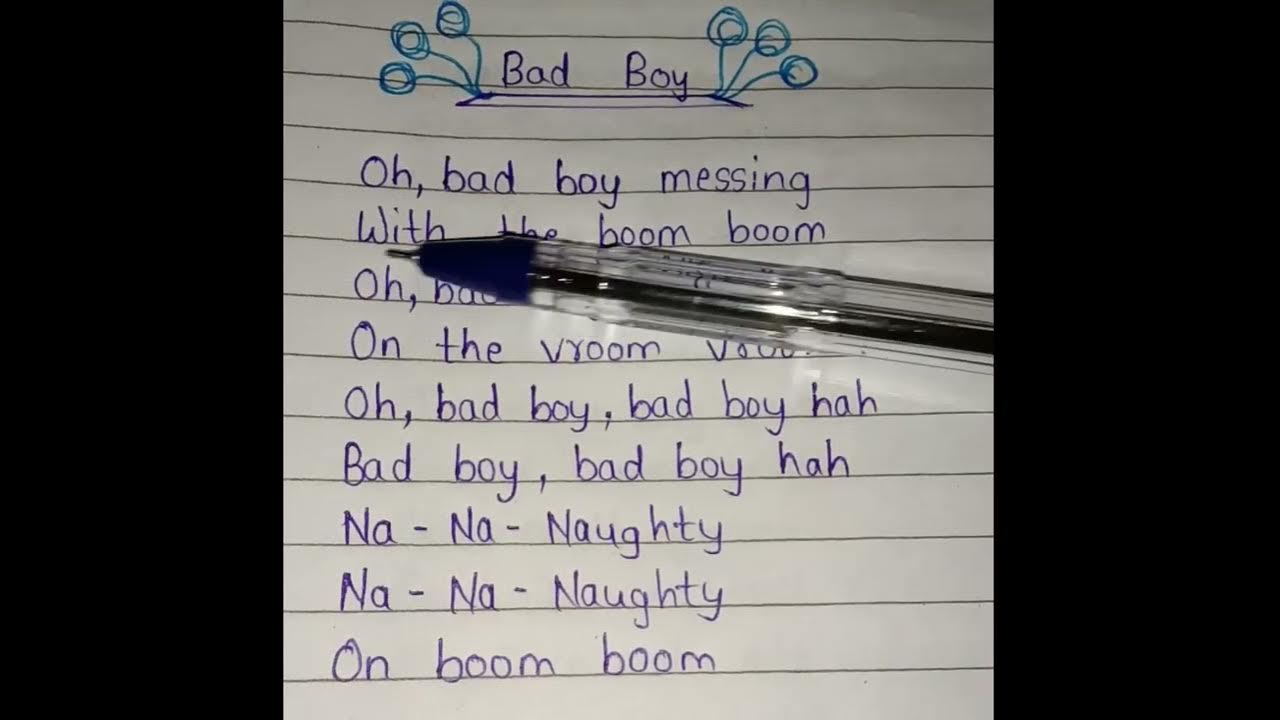 Bad Boy
Oh, bad boy messing
With the boom boom
Oh, bad
On the vroom
Oh, bad boy, bad boy hah
Bad boy, bad boy hah
Na - Na - Naughty
Na - Na - Naughty
On boom boom